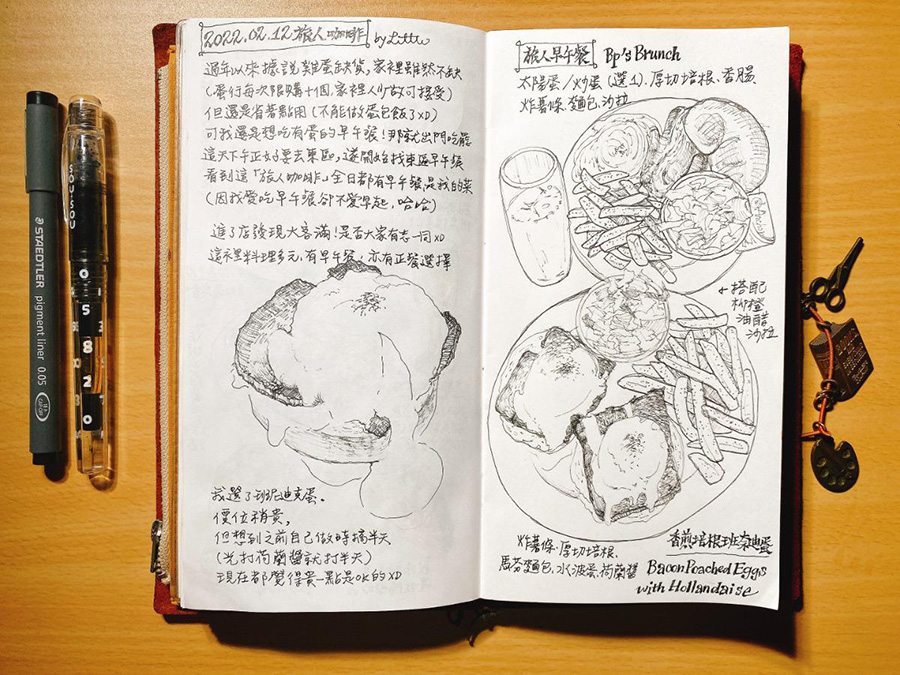 2022.02.12 旅人咖啡 by Lottie
過年以來據說雞蛋缺貨，家裡雖然不缺
(蛋行每次限購十個，家裡人少做可接受)
但還是省著點用(不能做蛋包飯了XD)
可我還是想吃有蛋的早午餐！那就出門吃龍
這天下午正好要去東區，遂開始找東區早午餐
看到這「旅人咖啡」全日都有早午餐，是我的菜
(因我愛吃早午餐卻不愛早起，哈哈)
進了店發現大客滿！是否大家有志一同XD
這裡料理多元，有早午餐，亦有正餐選擇
我選了班尼迪克蛋。
價位稍貴，
但想到之前自己做時搞半天
(光打荷蘭醬就打半天)
現在都覺得貴一點是OK的XD
旅人早午餐 Bp's Brunch
太陽蛋/炒蛋(選1)、厚切培根、香腸、
炸薯條、麵包、沙拉
←搭配
柳橙
油醋
沙拉
炸薯條、厚切培根、
馬芬麵包、水波蛋、荷蘭醬
香煎培根班尼迪克蛋
Bacon Poached Eggs
with Hollandaise
STAEDTLER pigment liner 0.05
SOU·SOU
0
5
8
2
0